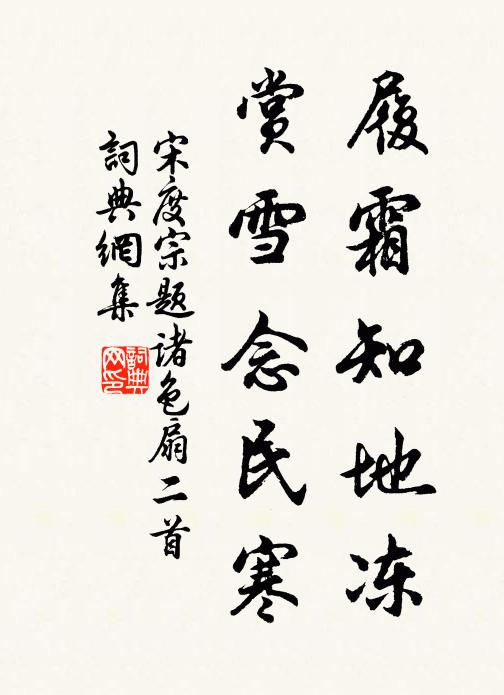 履霜知地冻
赏雪念民寒
宋度宗题诸色扇二首
詞典網集
詞典网印